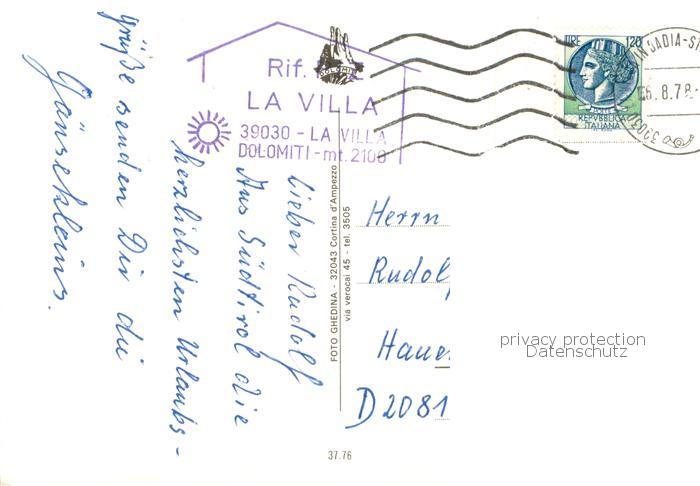 Lieber Rudolf
Aus Südtirol die
herzlichsten Urlaubs-
grüße senden Dir die
Gänsekleins.
Rif.
LA VILLA
39030 - LA VILLA
DOLOMITI - mt. 2100
DOLOMITI
FOTO GHEDINA - 32043 Cortina d'Ampezzo
via verocai 45 - tel. 3505
LIRE 120
REPVBBLICA
ITALIANA
BADIA-ST
8.78
39030
Herrn
Rudol
Haue
D2081
privacy protection
Datenschutz
37.76